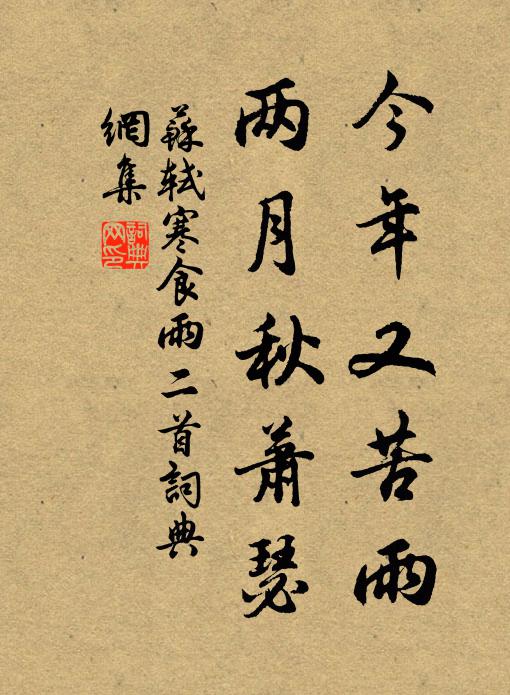 今年又苦雨
两月秋蕭瑟
蘇軾寒食雨二首詞典
網集
詞典網印